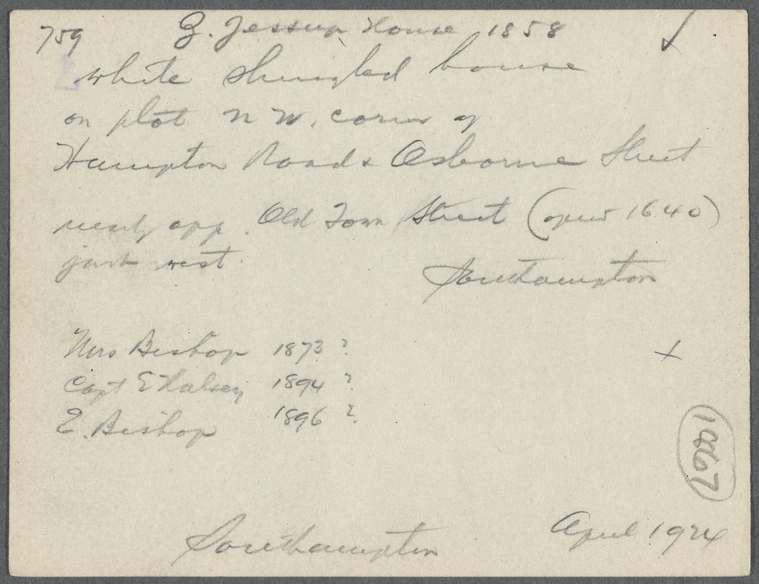 759 Z. Jessup House 1858
white shingled house
on plot N W. corner of
Hampton Road & Osborne Street
nearly opp. Old Town Street (open 1640)
just west.
Southampton
Mrs Bishop 1873 ?
Capt E Halsey 1894 ?
E. Bishop 1896 ?
1867
Southampton April 1924